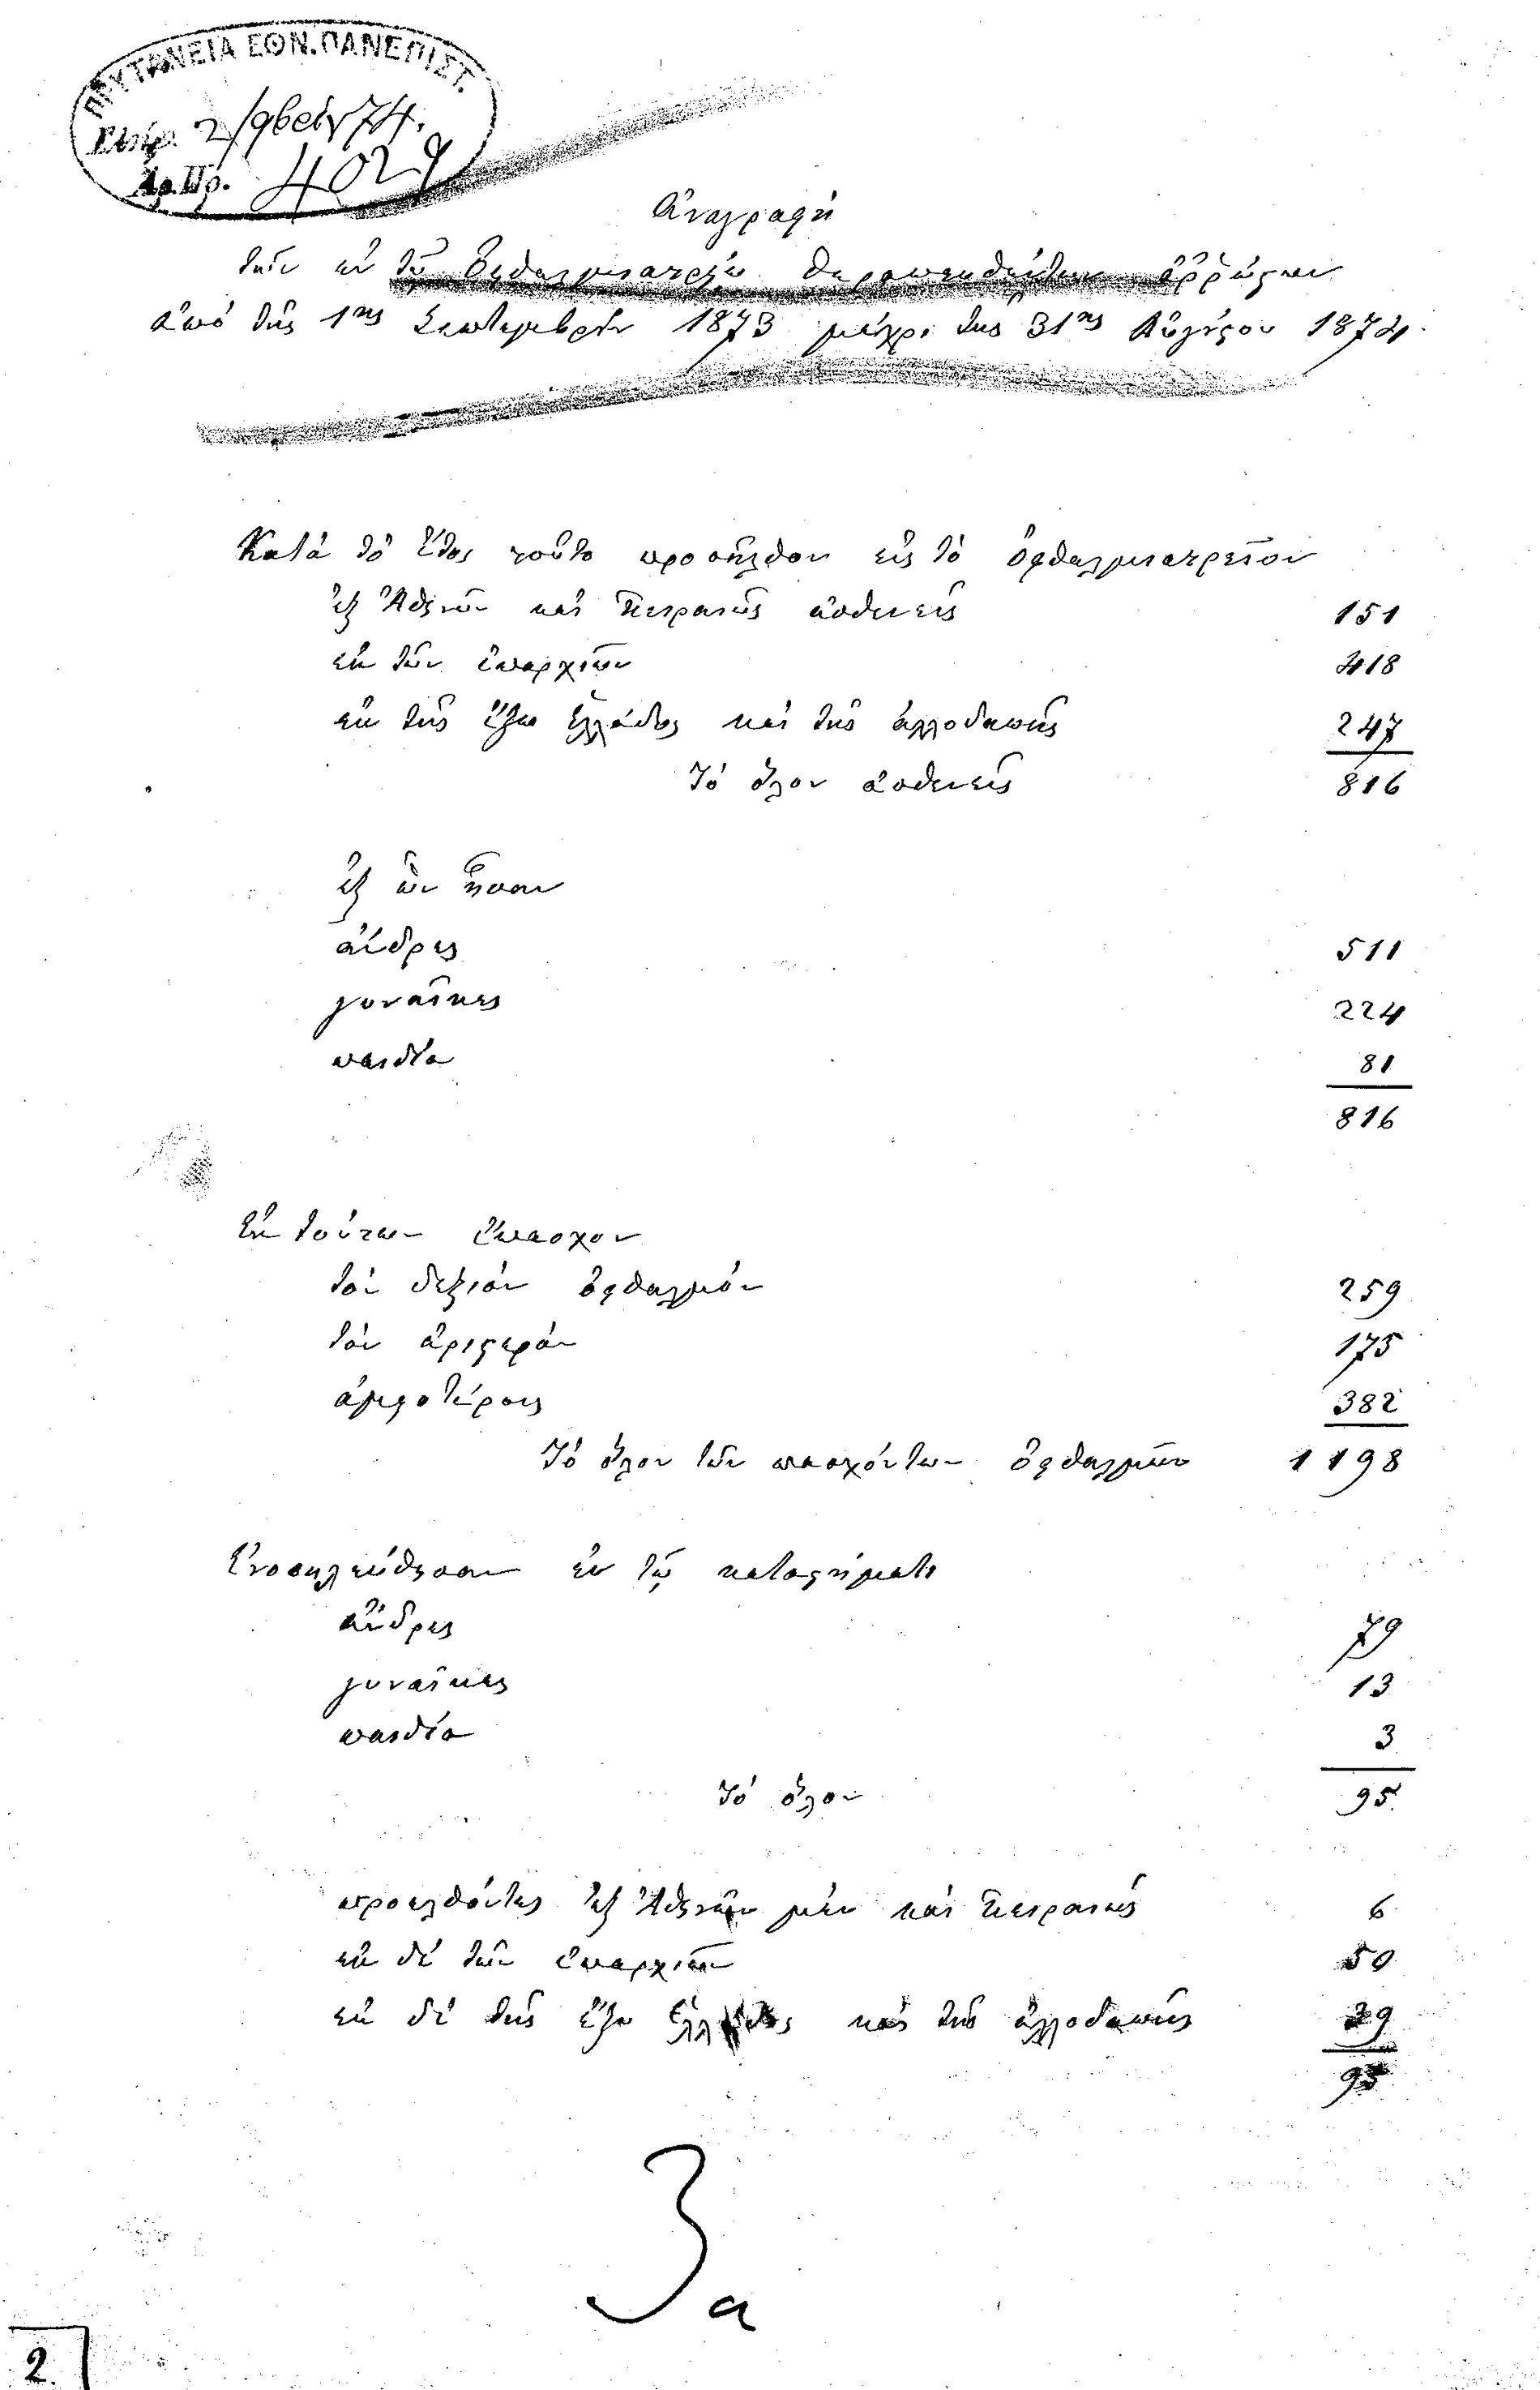 ΠΡΥΤΑΝΕΙΑ ΕΘΝ. ΠΑΝΕΠΙΣΤ.
2/9βρίου 74.
Αρ. Πρ. 4029
Ἀναγραφὴ
τῶν ἐν τῷ Ὀφθαλμιατρείῳ θεραπευθέντων ἀῤῥώστων
ἀπὸ τῆς 1ης Σεπτεμβρίου 1873 μέχρι τῆς 31ης Αὐγούστου 1874.
Κατὰ τὸ ἔτος τοῦτο προσῆλθον εἰς τὸ ὀφθαλμιατρεῖον
ἐξ Ἀθηνῶν καὶ Πειραιῶς ἀσθενεῖς 151
ἐκ τῶν ἐπαρχιῶν 418
ἐκ τῆς ἔξω Ἑλλάδος καὶ τῆς ἀλλοδαπῆς 247
Τὸ ὅλον ἀσθενεῖς 816
ἐξ ὧν ἦσαν
ἄνδρες 511
γυναῖκες 224
παιδία 81
816
Ἐκ τούτων ἔπασχον
τὸν δεξιὸν ὀφθαλμὸν 259
τὸν ἀριστερὸν 175
ἀμφοτέρους 382
Τὸ ὅλον τῶν πασχόντων ὀφθαλμῶν 1198
Ἐνοσηλεύθησαν ἐν τῷ καταστήματι
ἄνδρες 79
γυναῖκες 13
παιδία 3
Τὸ ὅλον 95.
προελθόντες ἐξ Ἀθηνῶν μὲν καὶ Πειραιῶς 6
ἐκ δὲ τῶν ἐπαρχιῶν 50
ἐκ δὲ τῆς ἔξω Ἑλλάδος καὶ τῆς ἀλλοδαπῆς 39
95
3α
2.